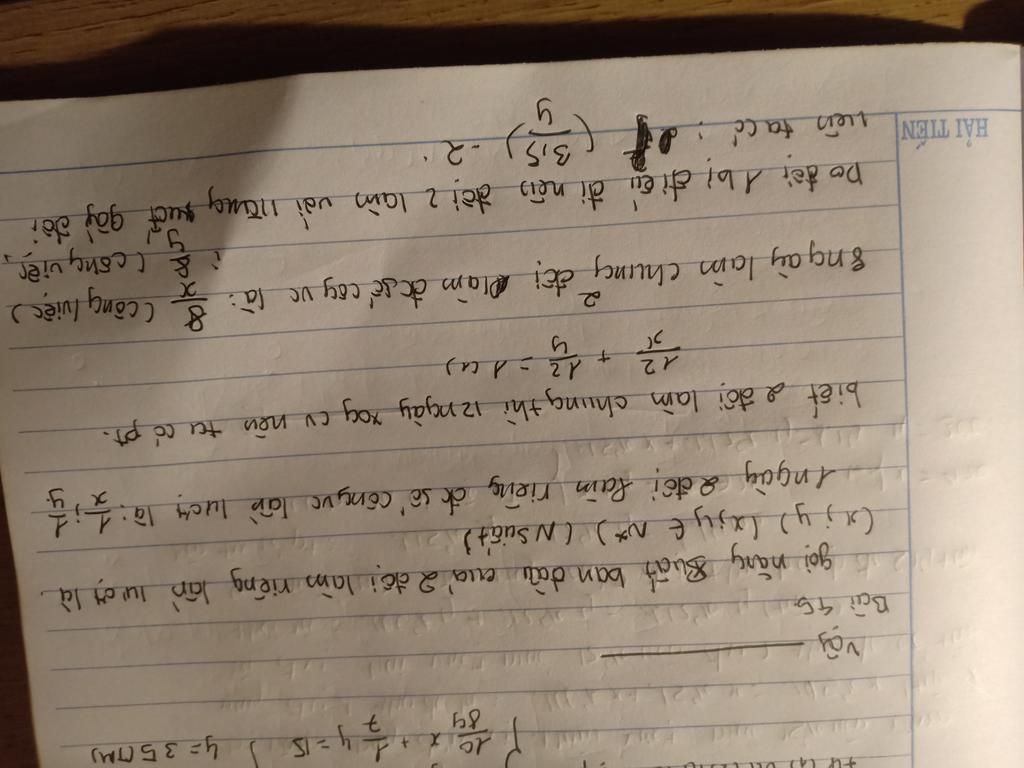 10/84 x + 1/7 y = 15 } y = 35 (TM)
Vậy
Bài 45
gọi năng suất ban đầu của 2 đội làm riêng lần lượt là
(x; y) (x; y ∈ N*) (N suất)
1 ngày 2 đội làm riêng đc số công vc lần lượt là: 1/x; 1/y
biết 2 đội làm chung thì 12 ngày xog cv nên ta có pt.
12/x + 12/y = 1 (1)
8 ngày làm chung 2 đội làm đc số côg vc là: 8/x (công việc)
; 8/y (công việc
Do đội 1 bị điều đi nên đội 2 làm với năng suất gấp đôi
nên ta có: (3,5/y) - 2
HẢI TIẾN